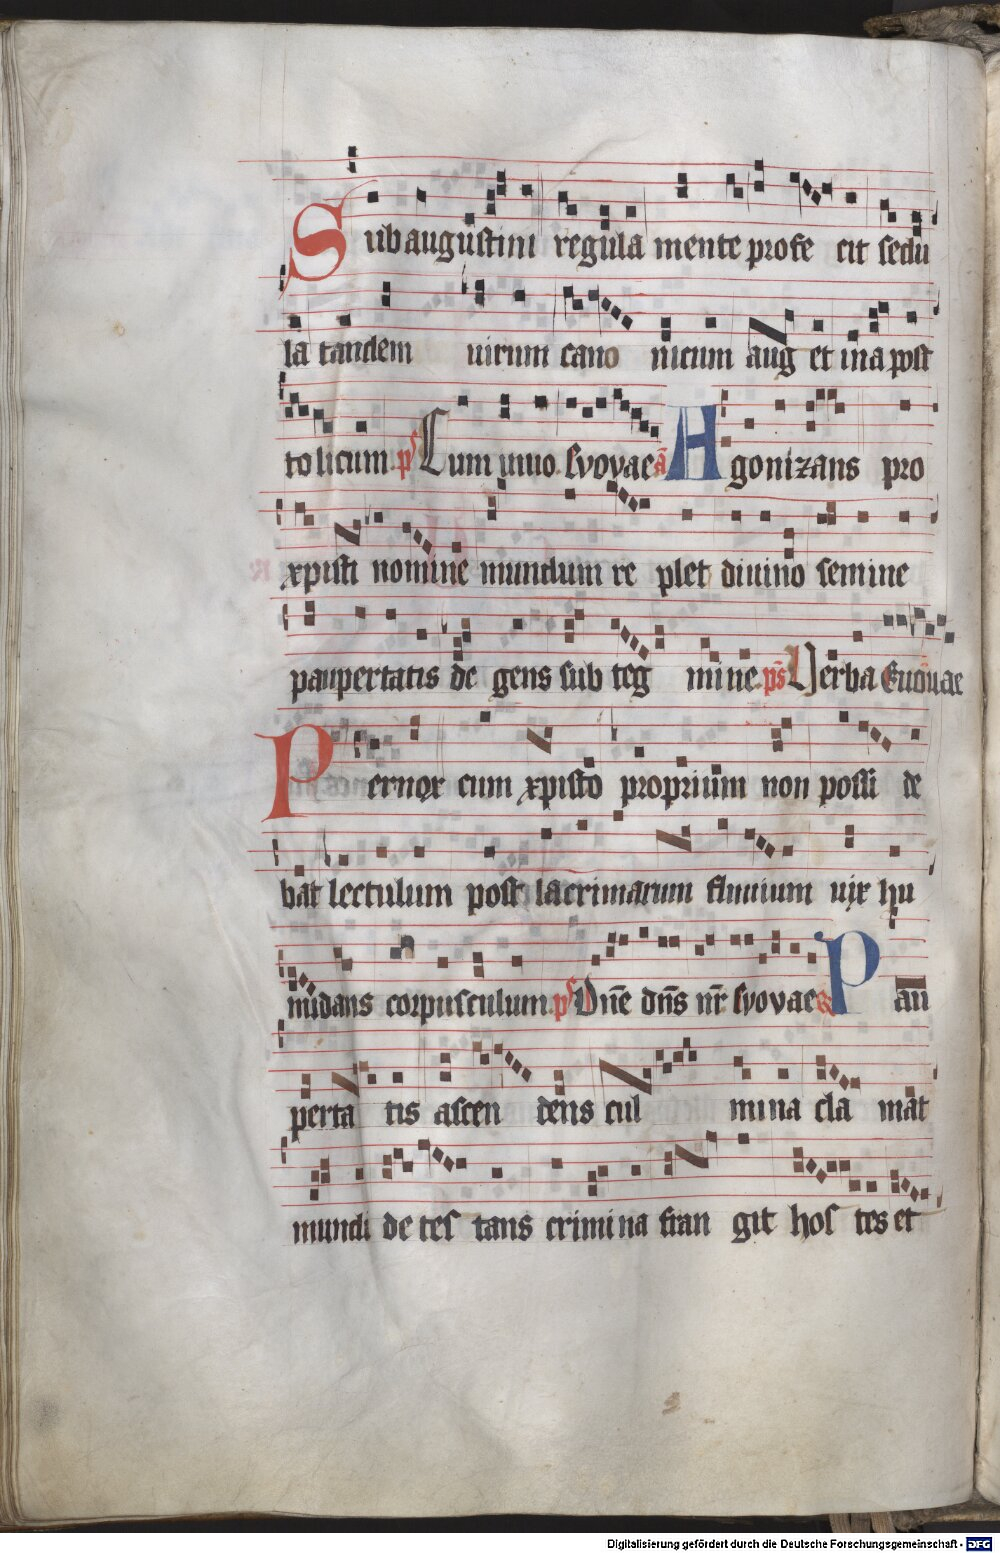 Sub augustini regula mente profe cit sedu
la tandem uirum cano nicum aug et in a post
to licum. ps Cum inuo Evovae a Agonizans pro
xpisti nomine mundum re plet diuino semine
paupertatis de gens sub teg mine. ps Verba Euouae
Pernox cum xpisto proprium non possi de
bat lectulum post lacrimarum fluuium uix hu
midans corpusculum. ps Dne dns nr Evovae R Pau
perta tis ascen dens cul mina cla mat
mundi de tes tans crimina fran git hos tes et
Digitalisierung gefördert durch die Deutsche Forschungsgemeinschaft - DFG